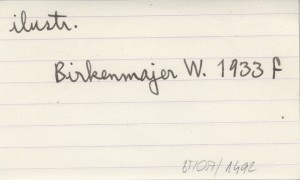 ilustr.
Birkenmajer W. 1933 f
67/07/1492